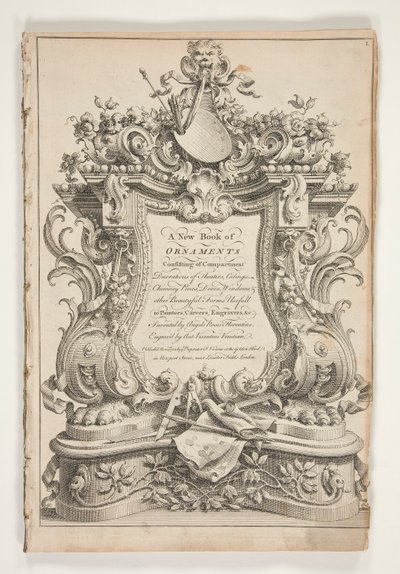 1.
A New Book of
ORNAMENTS
Consisting of Compartment
Decorations of Theatres, Ceilings,
Chimney Pieces, Doors, Windows, &
other Beautiful Forms, Usefull
to Painters, Carvers, Engravers, &c
Invented by Angelo Rossi Florentine,
Engraved by Ant. Visentini Venitian,
Published by Engraver & Vivares at the Golden Head
in Newport Street, near Leicester Fields London.